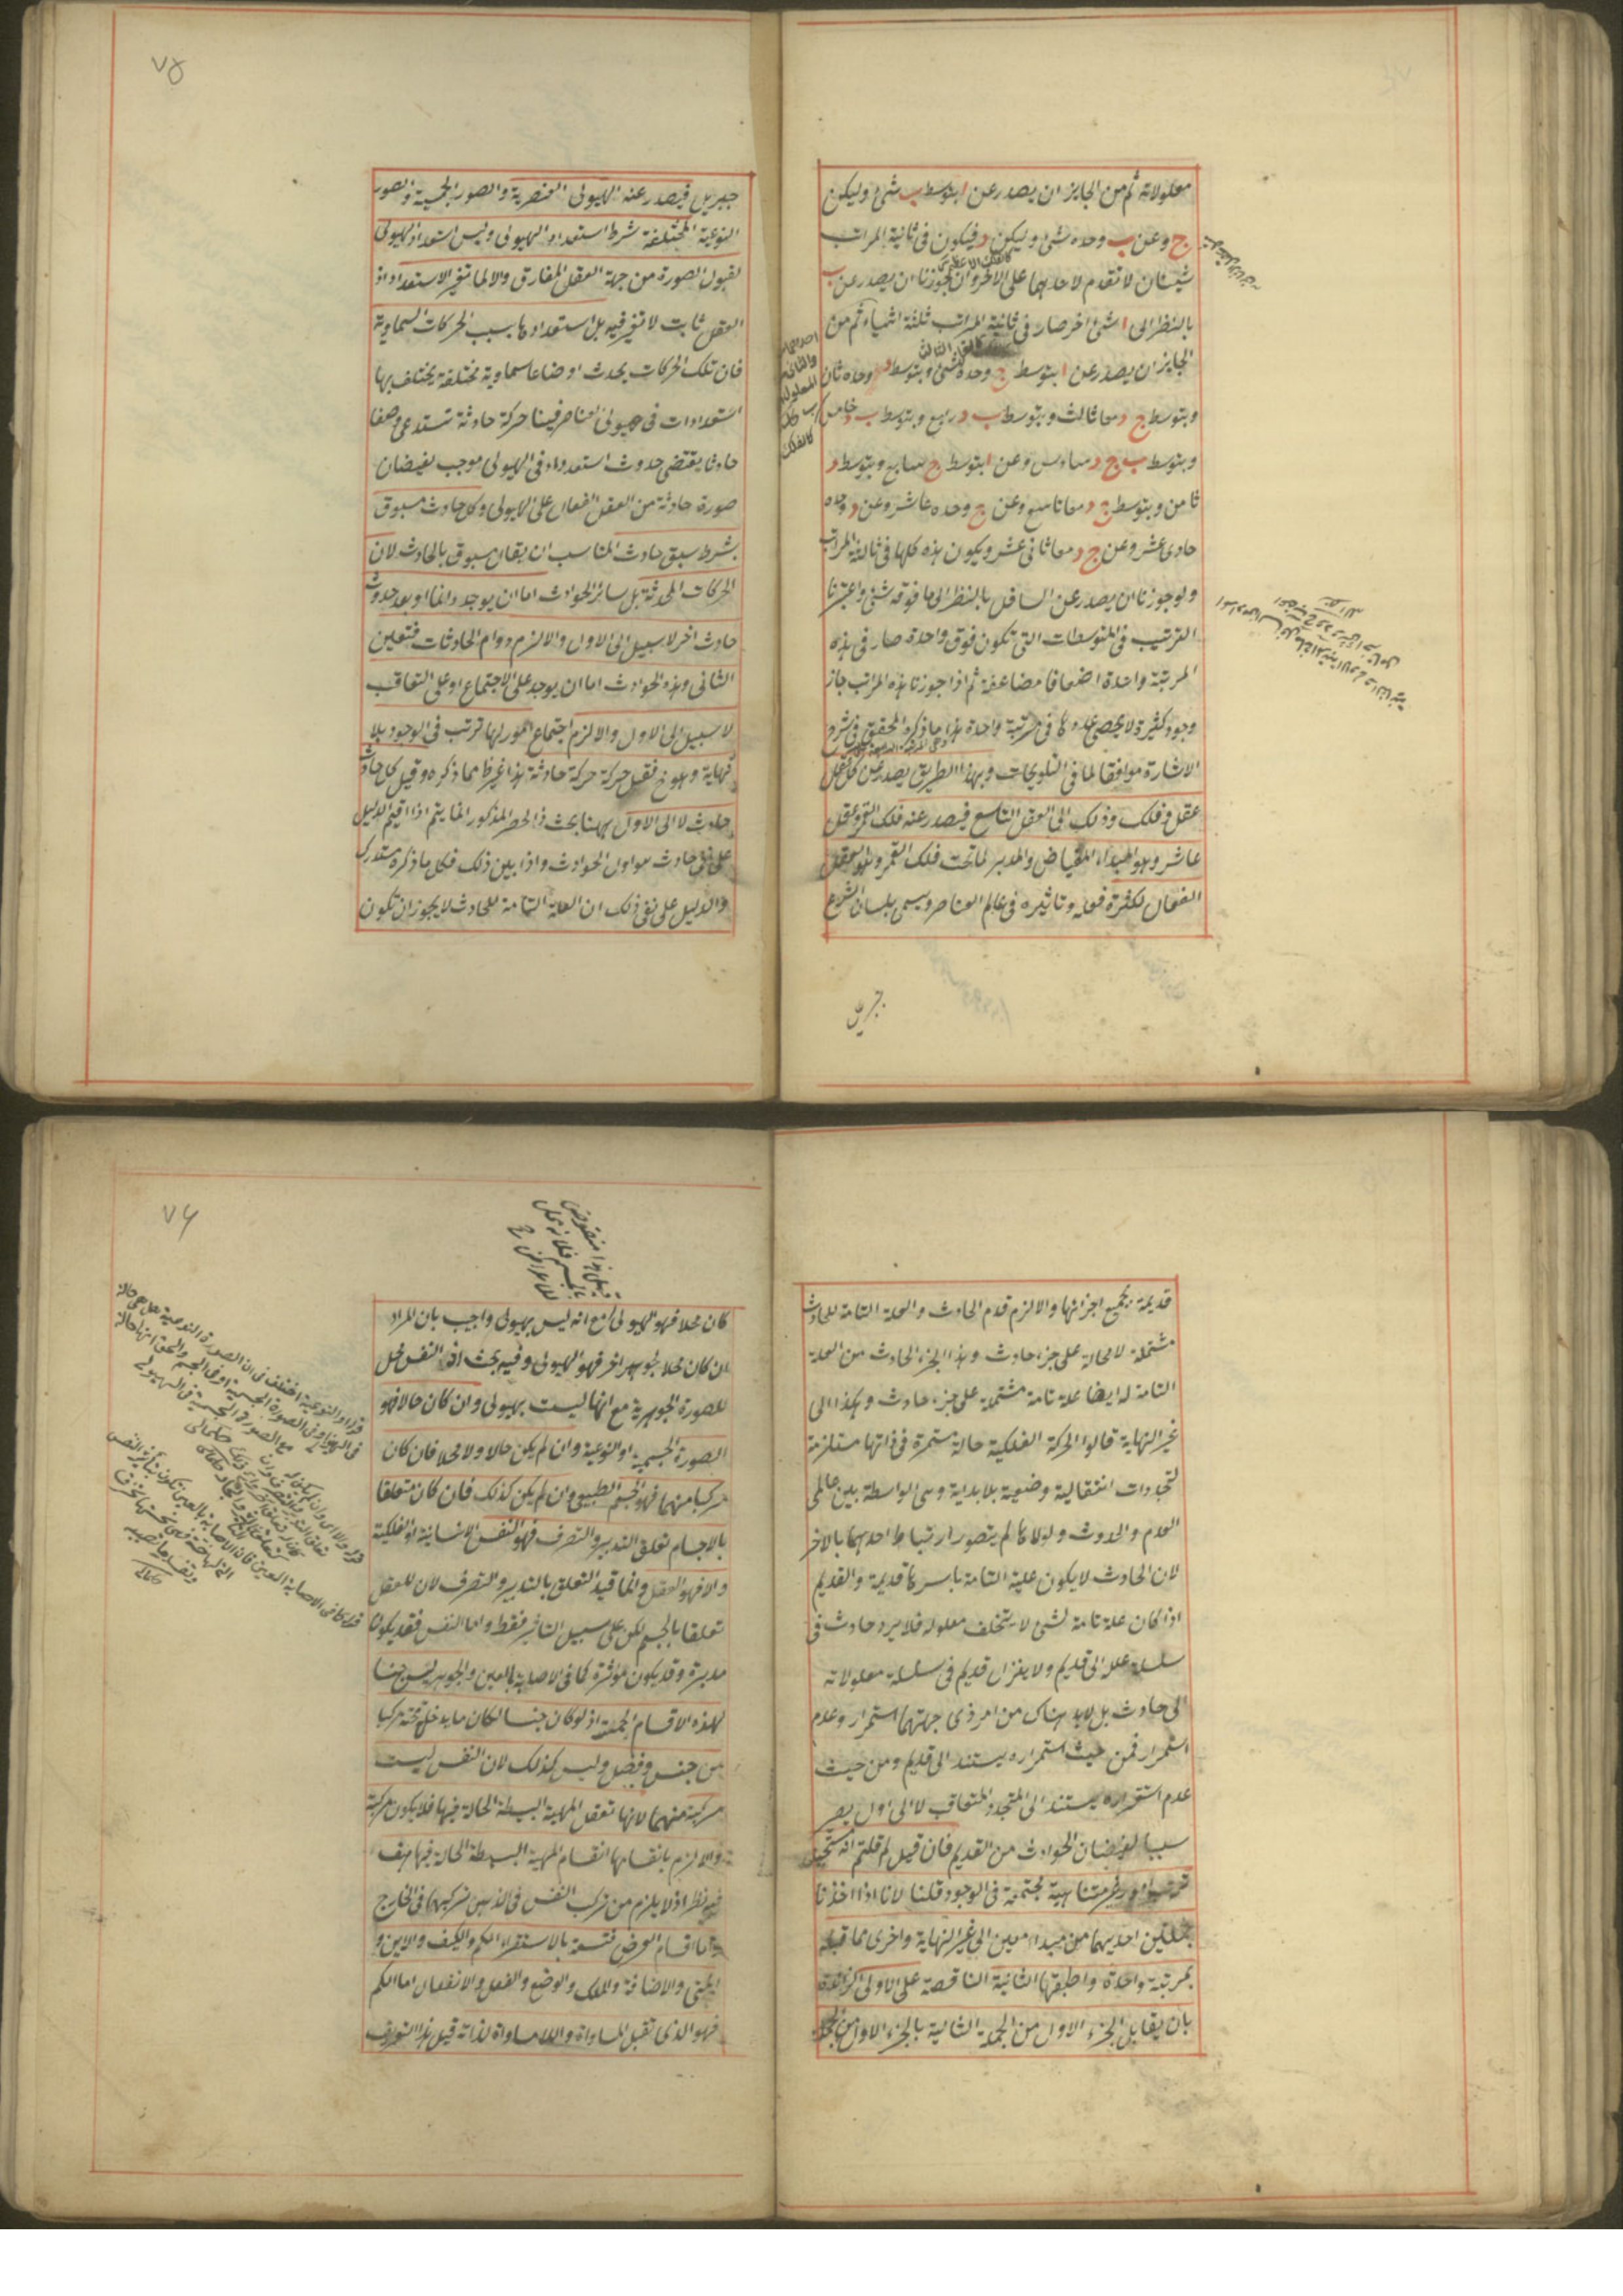 معلولاته ثم من الجايز ان يصدر عن ا بتوسط ب شئ وليكن
ج وعن ب وحده شئ وليكن د فيكون فى ثانية المراتب
شيئان لا تقدم لاحدهما على الاخر وان جوزنا ان يصدر عن ب
بالنظر الى ا شئ اخر صار فى ثانية المراتب ثلثة اشياء ثم من
الجايز ان يصدر عن ا بتوسط ج وحده شئ وبتوسط د وحده ثان
وبتوسط ج د معا ثالث وبتوسط ب د رابع وبتوسط ب خامس
وبتوسط ب ج د سادس وعن ا بتوسط ج سابع وبتوسط د
ثامن وبتوسط ج د معا تاسع وعن ج وحده عاشر وعن د وحده
حادى عشر وعن ج د معا ثانى عشر ويكون هذه كلها فى ثالثة المراتب
ولو جوزنا ان يصدر عن السافل بالنظر الى ما فوقه شئ واعتبرنا
الترتيب فى المتوسطات التى تكون فوق واحدة صار فى هذه
المرتبة واحدة اضعافا مضاعفة ثم اذا جوزنا هذه المراتب جاز
وجود كثيرة لا يحصى عددها فى مرتبة واحدة هذا ما ذكره المحقق فى شرح
الاشارة موافقا لما فى التلويحات وبهذا الطريق يصدر عن كل عقل
عقل وفلك وذلك الى العقل التاسع فيصدر عنه فلك القمر وعقل
عاشر وهو المبداء الفياض والمدبر لما تحت فلك القمر وهو العقل
الفعال لكثرة فعله وتاثيره فى عالم العناصر ويسمى بلسان الشرع
جبريل
٧٥
جبريل فيصدر عنه الهيولى العنصرية والصور الجسمية والصور
النوعية المختلفة شرط استعداد الهيولى وليس استعداد الهيولى
لقبول الصورة من جهة العقل المفارق والا لما تغير الاستعداد اذ
العقل ثابت لا تغير فيه بل استعدادها بسبب الحركات السماوية
فان تلك الحركات يحدث اوضاعا سماوية مختلفة يختلف بها
استعدادات فى هيولى العناصر فيها حركة حادثة تستدعى وضعا
حادثا يقتضى حدوث استعداد فى الهيولى موجب لفيضان
صورة حادثة من العقل الفعال على الهيولى وكل حادث مسبوق
بشرط سبق حادث المناسب ان يقال مسبوق بالحادث لان
الحركات المحدثة بل سائر الحوادث اما ان يوجد دائما او بعد حدوث
حادث اخر لا سبيل الى الاول والا لزم دوام الحادثات فتعين
الثانى وهذه الحوادث اما ان يوجد على الاجتماع او على التعاقب
لا سبيل الى الاول والا لزم اجتماع امور لها ترتب فى الوجود بلا
نهاية وهو مح فقبل حركة حركة حادثة هذا غير ظ مما ذكره وقبل كل حادث
حادث لا الى الاول ههنا بحث ذ الحصر المذكور انما يتم اذا اقيم الدليل
على نفى حادث هو اول الحوادث واذا بين ذلك فكل ما ذكره مستدرك
والدليل على نفى ذلك ان العلة التامة للحادث لا يجوز ان تكون
قديمة بجميع اجزائها والا لزم قدم الحادث والعلة التامة للحادث
مشتملة لا محالة على جزء حادث وهذا الجزء الحادث من العلة
التامة له ايضا علة تامة مشتملة على جزء حادث وهكذا الى
غير النهاية قالوا الحركة الفلكية حالة مستمرة فى ذاتها مستلزمة
لتجددات انتقالية وضعية بلا بداية وهى الواسطة بين عالمى
العدم والحدوث ولولاها لم يتصور ارتباط احدهما بالاخر
لان الحادث لا يكون علية التامة باسرها قديمة والقديم
اذا كان علة تامة لشئ لا يتخلف معلوله فلا يرد حادث فى
سلسلة علله الى قديم ولا ينزل قديم فى سلسلة معلولاته
الى حادث بل لابد هناك من امر ذى جهتها استمرار وعدم
استمرار فمن حيث استمراره يستند الى قديم ومن حيث
عدم استقراره يستند الى المتجدد المتعاقب لا الى اول يصير
سببا لفيضان الحوادث من القديم فان قيل لم قلتم انه يستحيل
ترتب امور غير متناهية مجتمعة فى الوجود قلنا لانا اذا اخذنا
جملتين احديهما من مبداء معين الى غير النهاية واخرى مما قبله
بمرتبة واحدة واطبقها الثانية الناقصة على الاولى الزائدة
بان يقابل الجزء الاول من الجملة الثانية بالجزء الاول من الجملة
٧٦
كان محلا فهو الهيولى مع انه ليس بهيولى واجيب بان المراد
ان كان محلا لجوهر اخر فهو الهيولى وفيه بحث اذ النفس محل
للصورة الجوهرية مع انها ليست بهيولى وان كان حالا فهو
الصورة الجسمية او النوعية وان لم يكن حالا ولا محلا فان كان
مركبا منهما فهو الجسم الطبيعى وان لم يكن كذلك فان كان متعلقا
بالاجسام تعلق التدبير والتصرف فهو النفس الانسانية او الفلكية
والا فهو العقل وانما قيد التعلق بالتدبير والتصرف لان للعقل
تعلقا بالجسم لكن على سبيل التاثير فقط واما النفس فقد يكون
مدبرة وقد يكون مؤثرة كما فى الاصابة بالعين والجوهر ليس جنسا
لهذه الاقسام الخمسة اذ لو كان جنسا لكان ما يدخل تحته مركبا
من جنس وفصل وليس كذلك لان النفس ليست
مركبة منهما لانها تعقل المهية البسيطة الحالة فيها فلا يكون مركبة
والا لزم بانقسامها انقسام المهية البسيطة الحالة فيها هف
فيه نظر اذ لا يلزم من تركب النفس فى الذهن تركبها فى الخارج
واما اقسام العرض فتسعة بالاستقراء الكم والكيف والاين و
المتى والاضافة والملك والوضع والفعل والانفعال اما الكم
فهو الذى تقبل المساواة واللامساواة لذاته قيل هذا التعريف